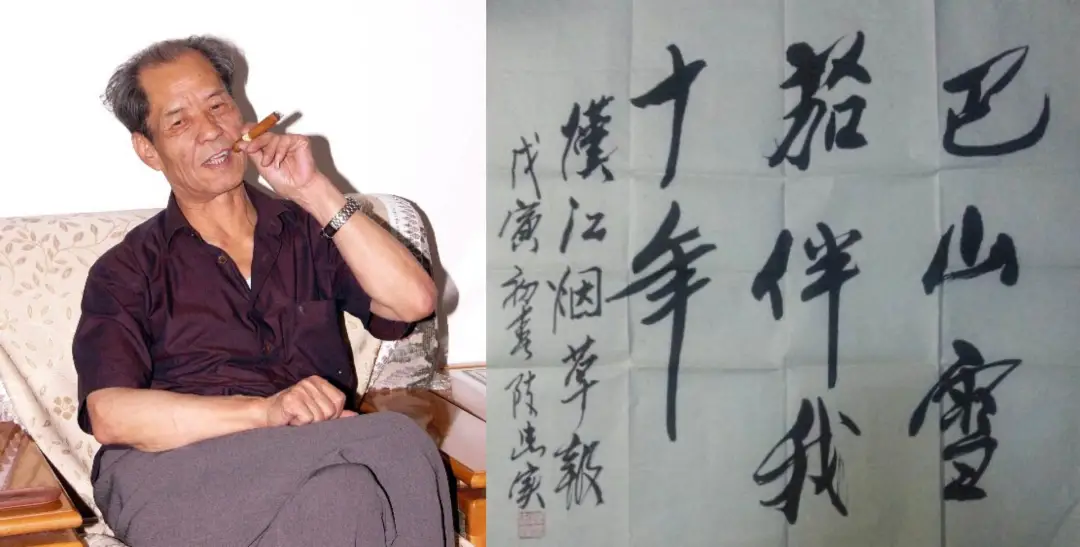 巴山雪
茄伴我
十年
漢江烟草報
戊寅初春陈忠实